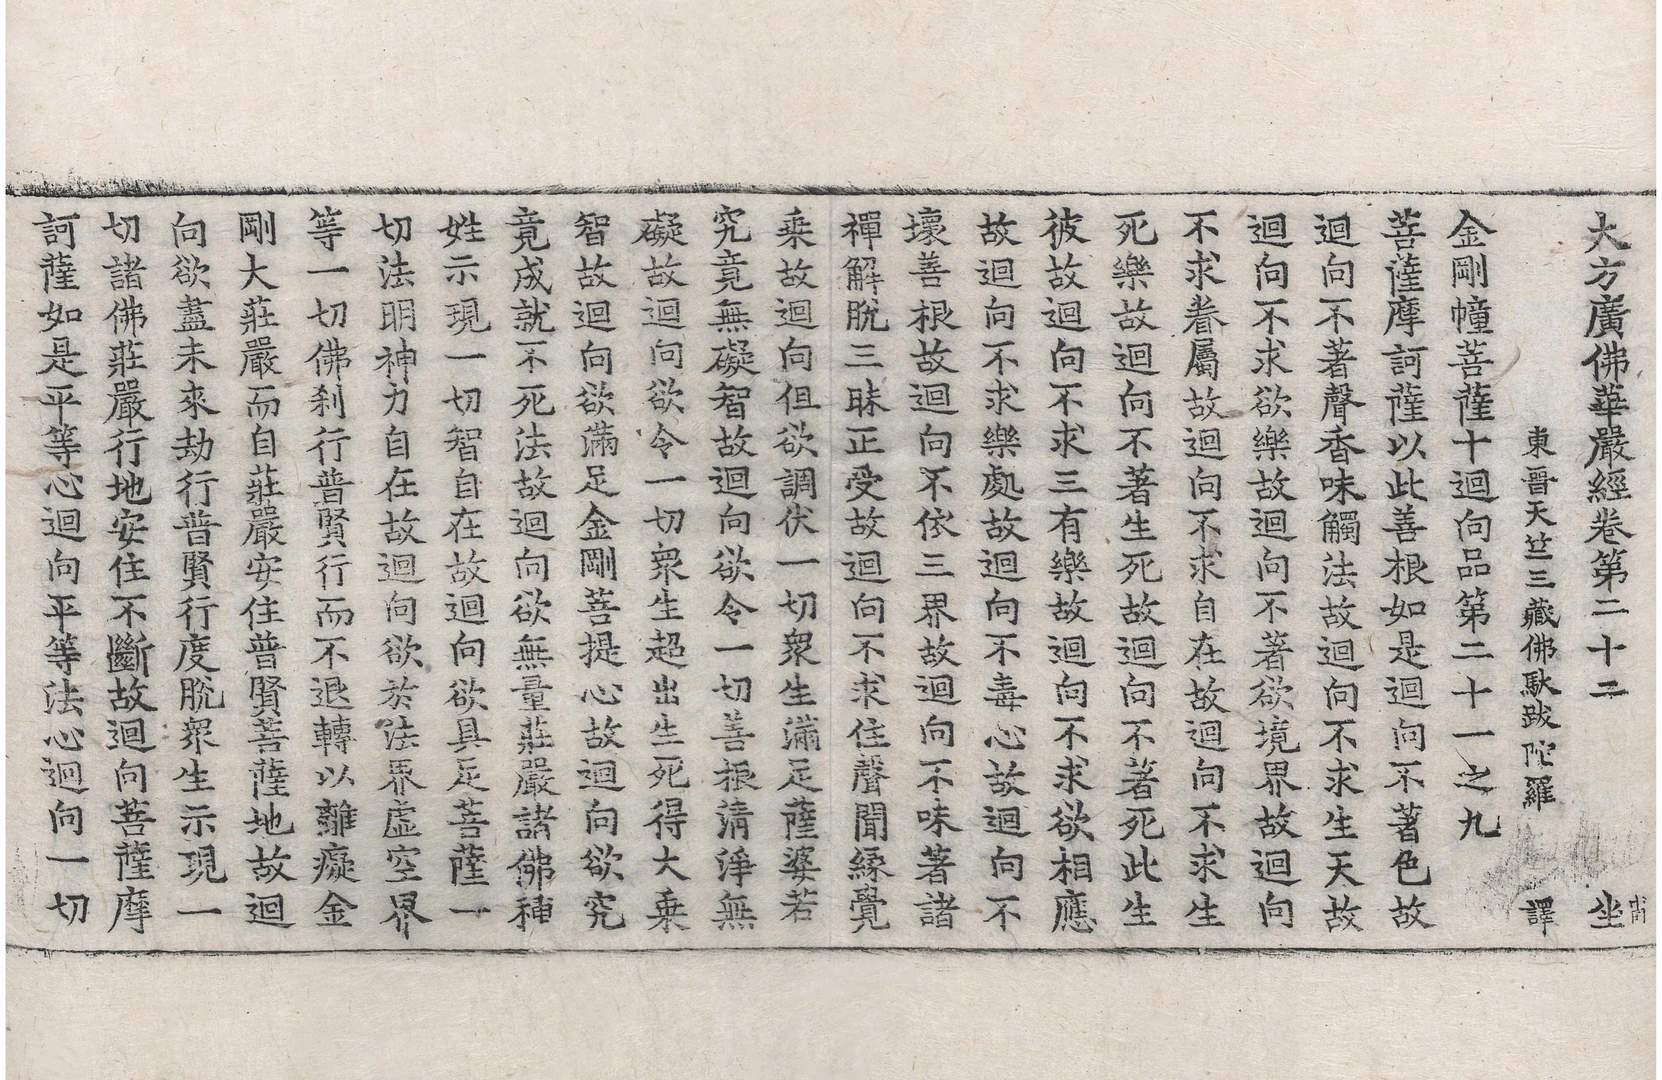 大方廣佛華嚴經卷第二十二 坐
東晉天竺三藏佛馱跋陀羅 譯
金剛幢菩薩十迴向品第二十一之九
菩薩摩訶薩以此善根如是迴向不著色故
迴向不著聲香味觸法故迴向不求生天故
迴向不求欲樂故迴向不著欲境界故迴向
不求眷屬故迴向不求自在故迴向不求生
死樂故迴向不著生死故迴向不著死此生
彼故迴向不求三有樂故迴向不求欲相應
故迴向不求樂處故迴向不毒心故迴向不
壞善根故迴向不依三界故迴向不味著諸
禪解脫三昧正受故迴向不求住聲聞緣覺
乗故迴向但欲調伏一切衆生滿足薩婆若
究竟無礙智故迴向欲令一切善根清淨無
礙故迴向欲令一切衆生超出生死得大乗
智故迴向欲滿足金剛菩提心故迴向欲究
竟成就不死法故迴向欲無量莊嚴諸佛種
姓示現一切智自在故迴向欲具足菩薩一
切法明神力自在故迴向欲於法界虛空界
等一切佛刹行普賢行而不退轉以離癡金
剛大莊嚴而自莊嚴安住普賢菩薩地故迴
向欲盡未來劫行普賢行度脫衆生示現一
切諸佛莊嚴行地安住不斷故迴向菩薩摩
訶薩如是平等心迴向平等法心迴向一切